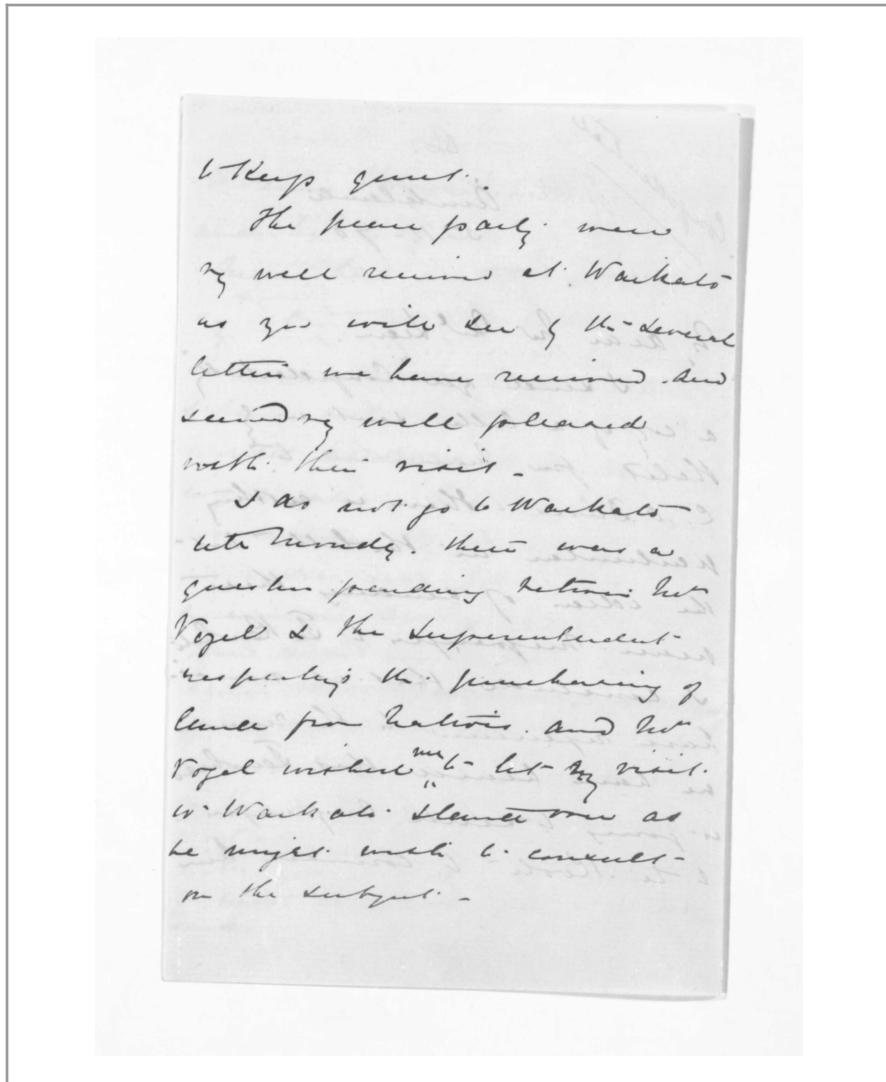 to Keep quiet.
The peace party were
very well received at Waikato
as you will see by the several
letters we have received and
seemed very well pleased
with their visit -
I do not go to Waikato
till Monday. there was a
question pending between Mr
Vogel & the Superintendent
respecting the purchasing of
land from Natives. and Mr
Vogel wished me to let my visit
to Waikato stand over as
he might wish to consult
on the subject -